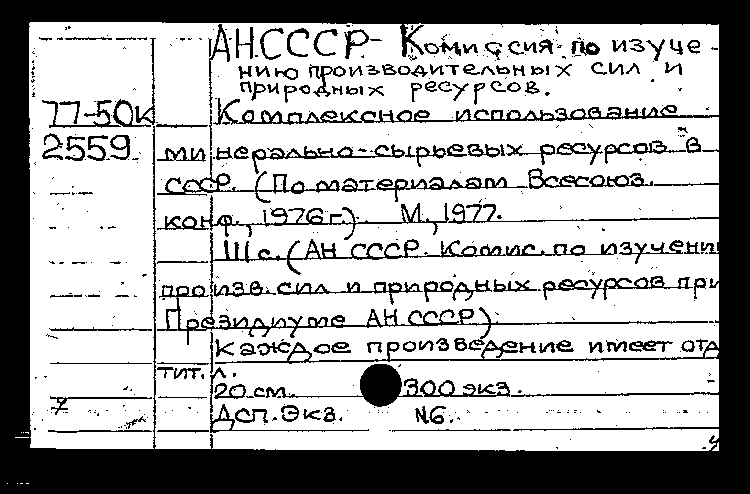 АН.СССР- Комиссия по изуче-
нию производительных сил и
природных ресурсов.
77-50к Комплексное использование
2559 минерально-сырьевых ресурсов в
СССР. (По материалам Всесоюз.
конф., 1976г.). М., 1977.
111с. (АН СССР. Комис. по изучени
произв. сил и природных ресурсов при
Президиуме АН.СССР)
Каждое произведение имеет отд
тит. л.
20 см. 300 экз.
Дсп. Экз. N6.